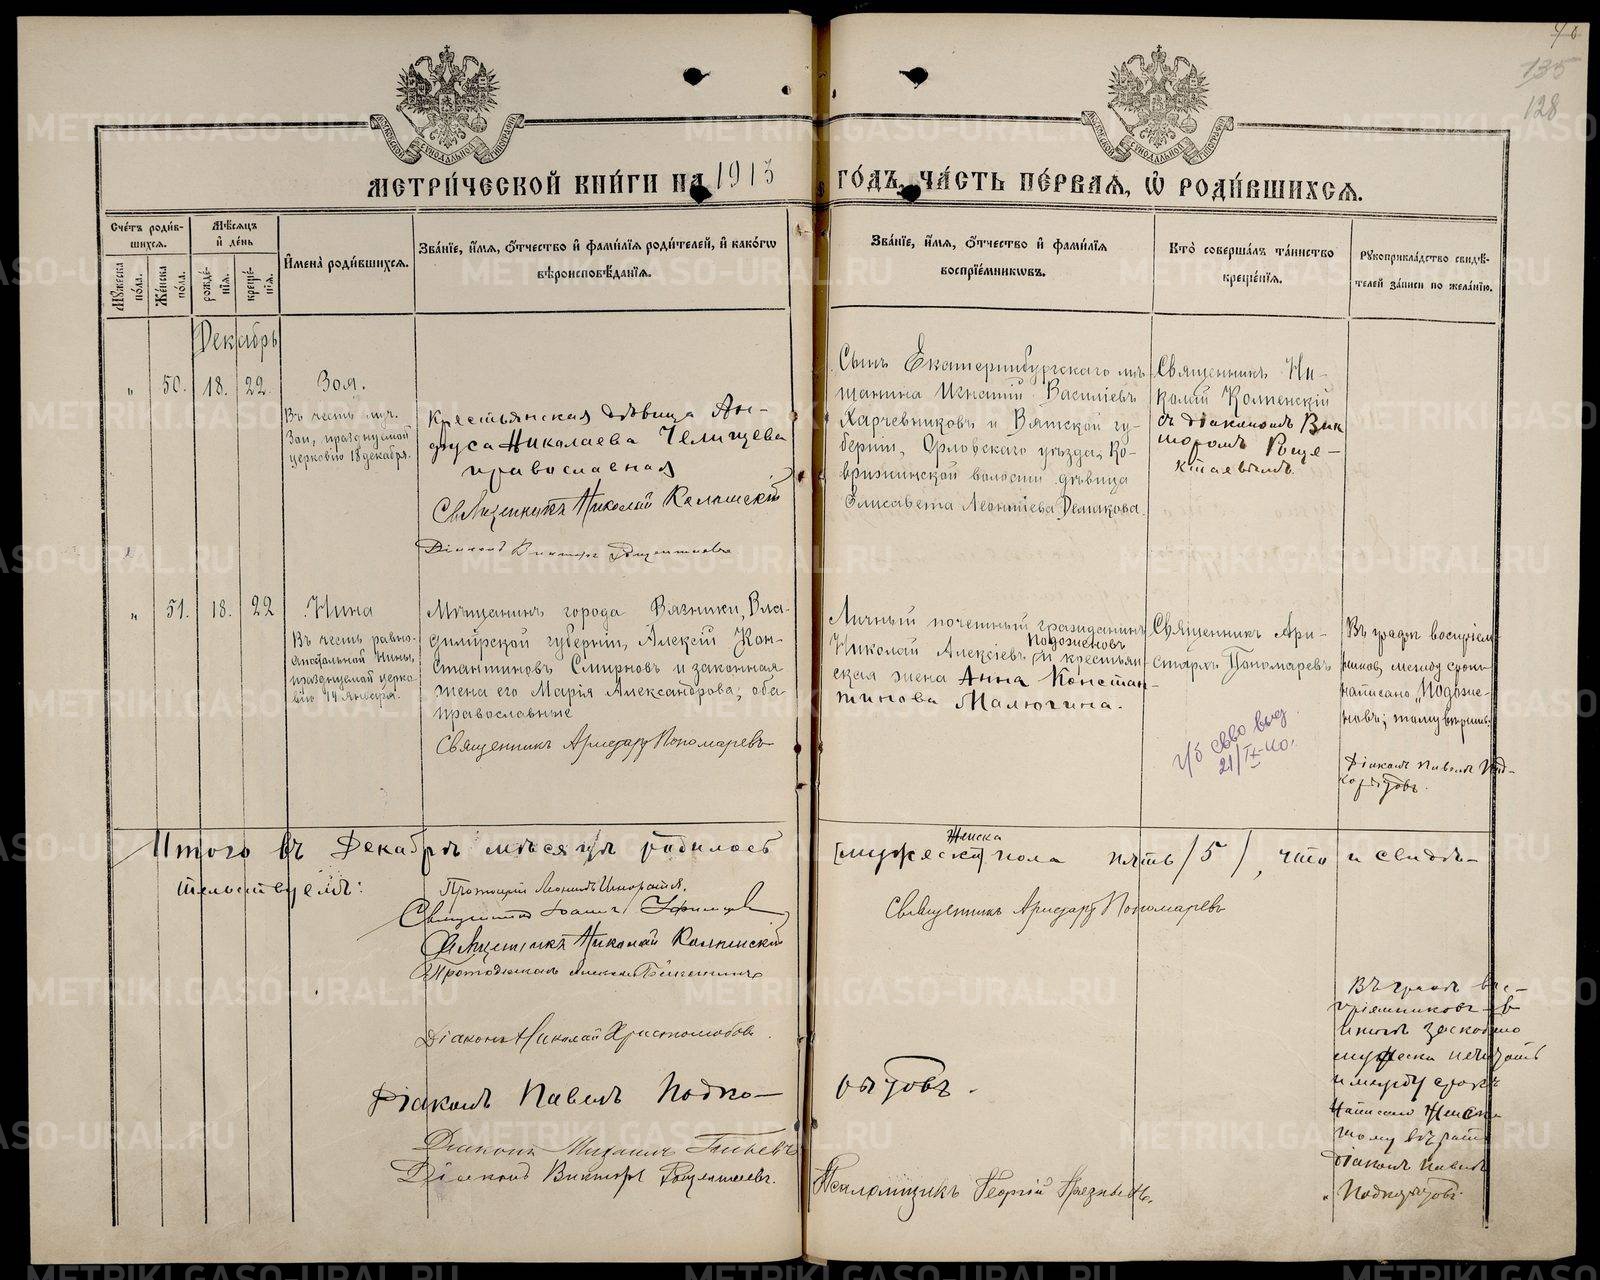 4б
135
128
МОСКОВСКОЙ СѴНОДАЛЬНОЙ ТИПОГРАФІИ
МОСКОВСКОЙ СѴНОДАЛЬНОЙ ТИПОГРАФІИ
МЕТРИ́ЧЕСКОЙ КНИ́ГИ НА 1913 ГО́ДЪ, ЧА́СТЬ ПЕ́РВАѦ, Ѡ҆ РОДИ́ВШИХСѦ.
Сче́тъ роди́вшихсѧ.
Мꙋ́жеска по́ла.
Же́нска по́ла.
Мѣ́сѧцъ и҆ де́нь
рожде́нїѧ.
креще́нїѧ.
И҆мена̀ роди́вшихсѧ.
Зва́нїе, и҆́мѧ, ѻ҆́тчество и҆ фами́лїѧ роди́телей, и҆ како́гѡ
вѣроисповѣ́данїѧ.
Зва́нїе, и҆́мѧ, ѻ҆́тчество и҆ фами́лїѧ
воспрїе́мникѡвъ.
Кто̀ соверша́лъ та́инство
креще́нїѧ.
Рꙋкоприкла́дство свидѣ́-
телей за́писи по жела́нїю.
Декабрь
" 50. 18. 22.
Зоя.
Въ честь муч.
Зои, празднуемой
церковію 18 декабря.
Крестьянская дѣвица Ан-
фуса Николаева Челищева
православная
Священникъ Николай Колпенскій
Діаконъ Викторъ
Сынъ Екатеринбургскаго мѣ-
щанина Игнатій Василіевъ
Харчевниковъ и Вятской гу-
берніи, Орловскаго уѣзда, Ко-
врижинской волости дѣвица
Елисавета Леонтіева Демакова.
Священникъ Ни-
колай Колпенскій
съ діакономъ Вик
торомъ Роще-
ктаевымъ.
" 51. 18. 22
Нина
Въ честь равно-
апостольной Нины,
празднуемой церко-
вію 14 января.
Мѣщанинъ города Вязники, Вла-
димірской губерніи, Алексій Кон-
стантиновъ Смирновъ и законная
жена его Марія Александрова; оба
православные
Священникъ Аристархъ Пономаревъ
Личный почетный гражданинъ
Подоженовъ
Николай Алексіевъ и крестьян
ская жена Анна Констан-
тинова Малютина.
Священникъ Ари-
стархъ Пономаревъ
г/б св-во выд
21/IX-40.
Въ графѣ воспріем
никовъ между строкъ
написано Подоже-
новъ; тому вѣрить.
Діаконъ Павелъ Под-
корытовъ.
Итого въ Декабрѣ мѣсяцѣ родилось
женска
[мужеска] пола пять /5/, что и свидѣ-
тельствуемъ:
Протоіерей Леонидъ Игноратовъ.
Священникъ Іоаннъ
Священникъ Николай Колпенскій
Протодіаконъ
Діаконъ Николай Христолюбовъ.
Діаконъ Павелъ Подко-
рытовъ.
Діаконъ Михаилъ
Діаконъ Викторъ Рощектаевъ.
Священникъ Аристархъ Пономаревъ
Псаломщикъ Георгій
Въ графѣ вос-
пріемниковъ въ
итогѣ заскоблено
мужеска не читать
и между строкъ
написано женска
тому вѣрить
Діаконъ Павелъ
Подкорытовъ.
METRIKI.GASO-URAL.RU